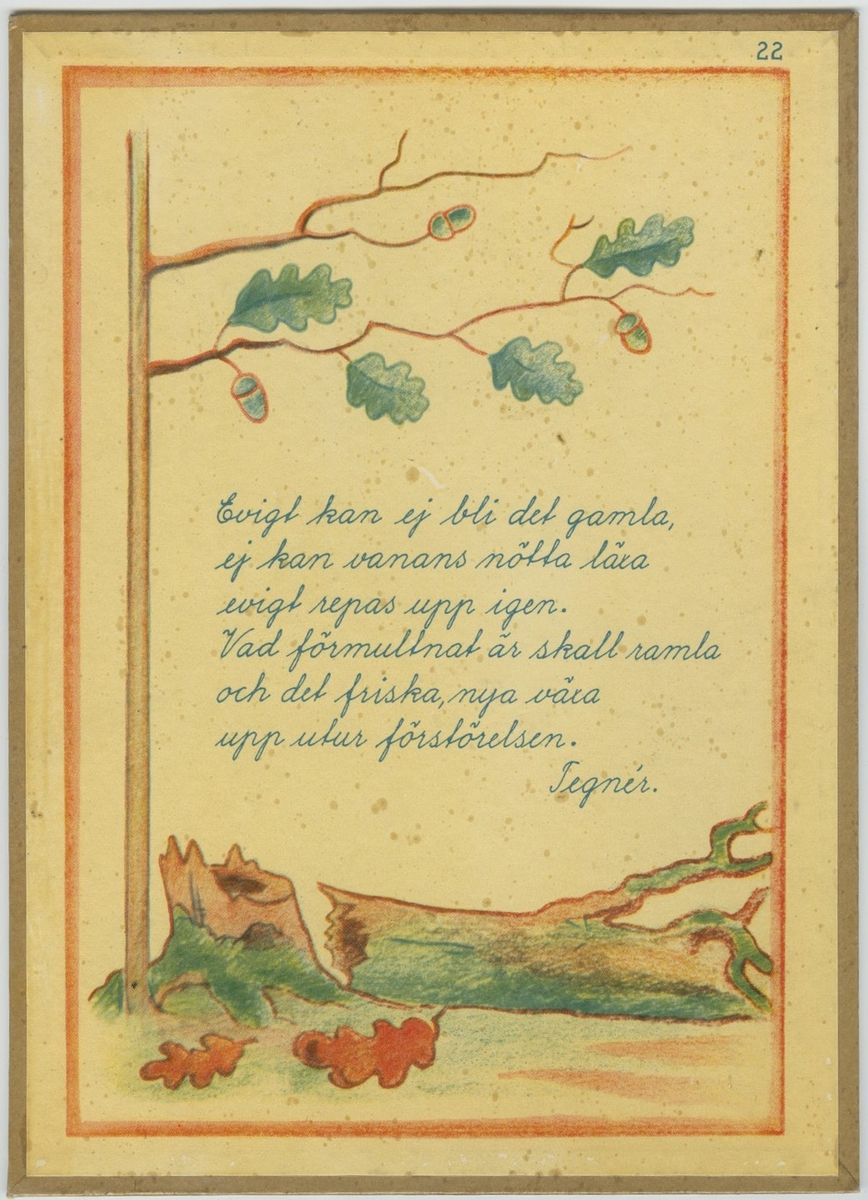 22
Evigt kan ej bli det gamla,
ej kan vanans nötta läxa
evigt repas upp igen.
Vad förmultnat är skall ramla
och det friska, nya växa
upp utur förstörelsen.
Tegnér.